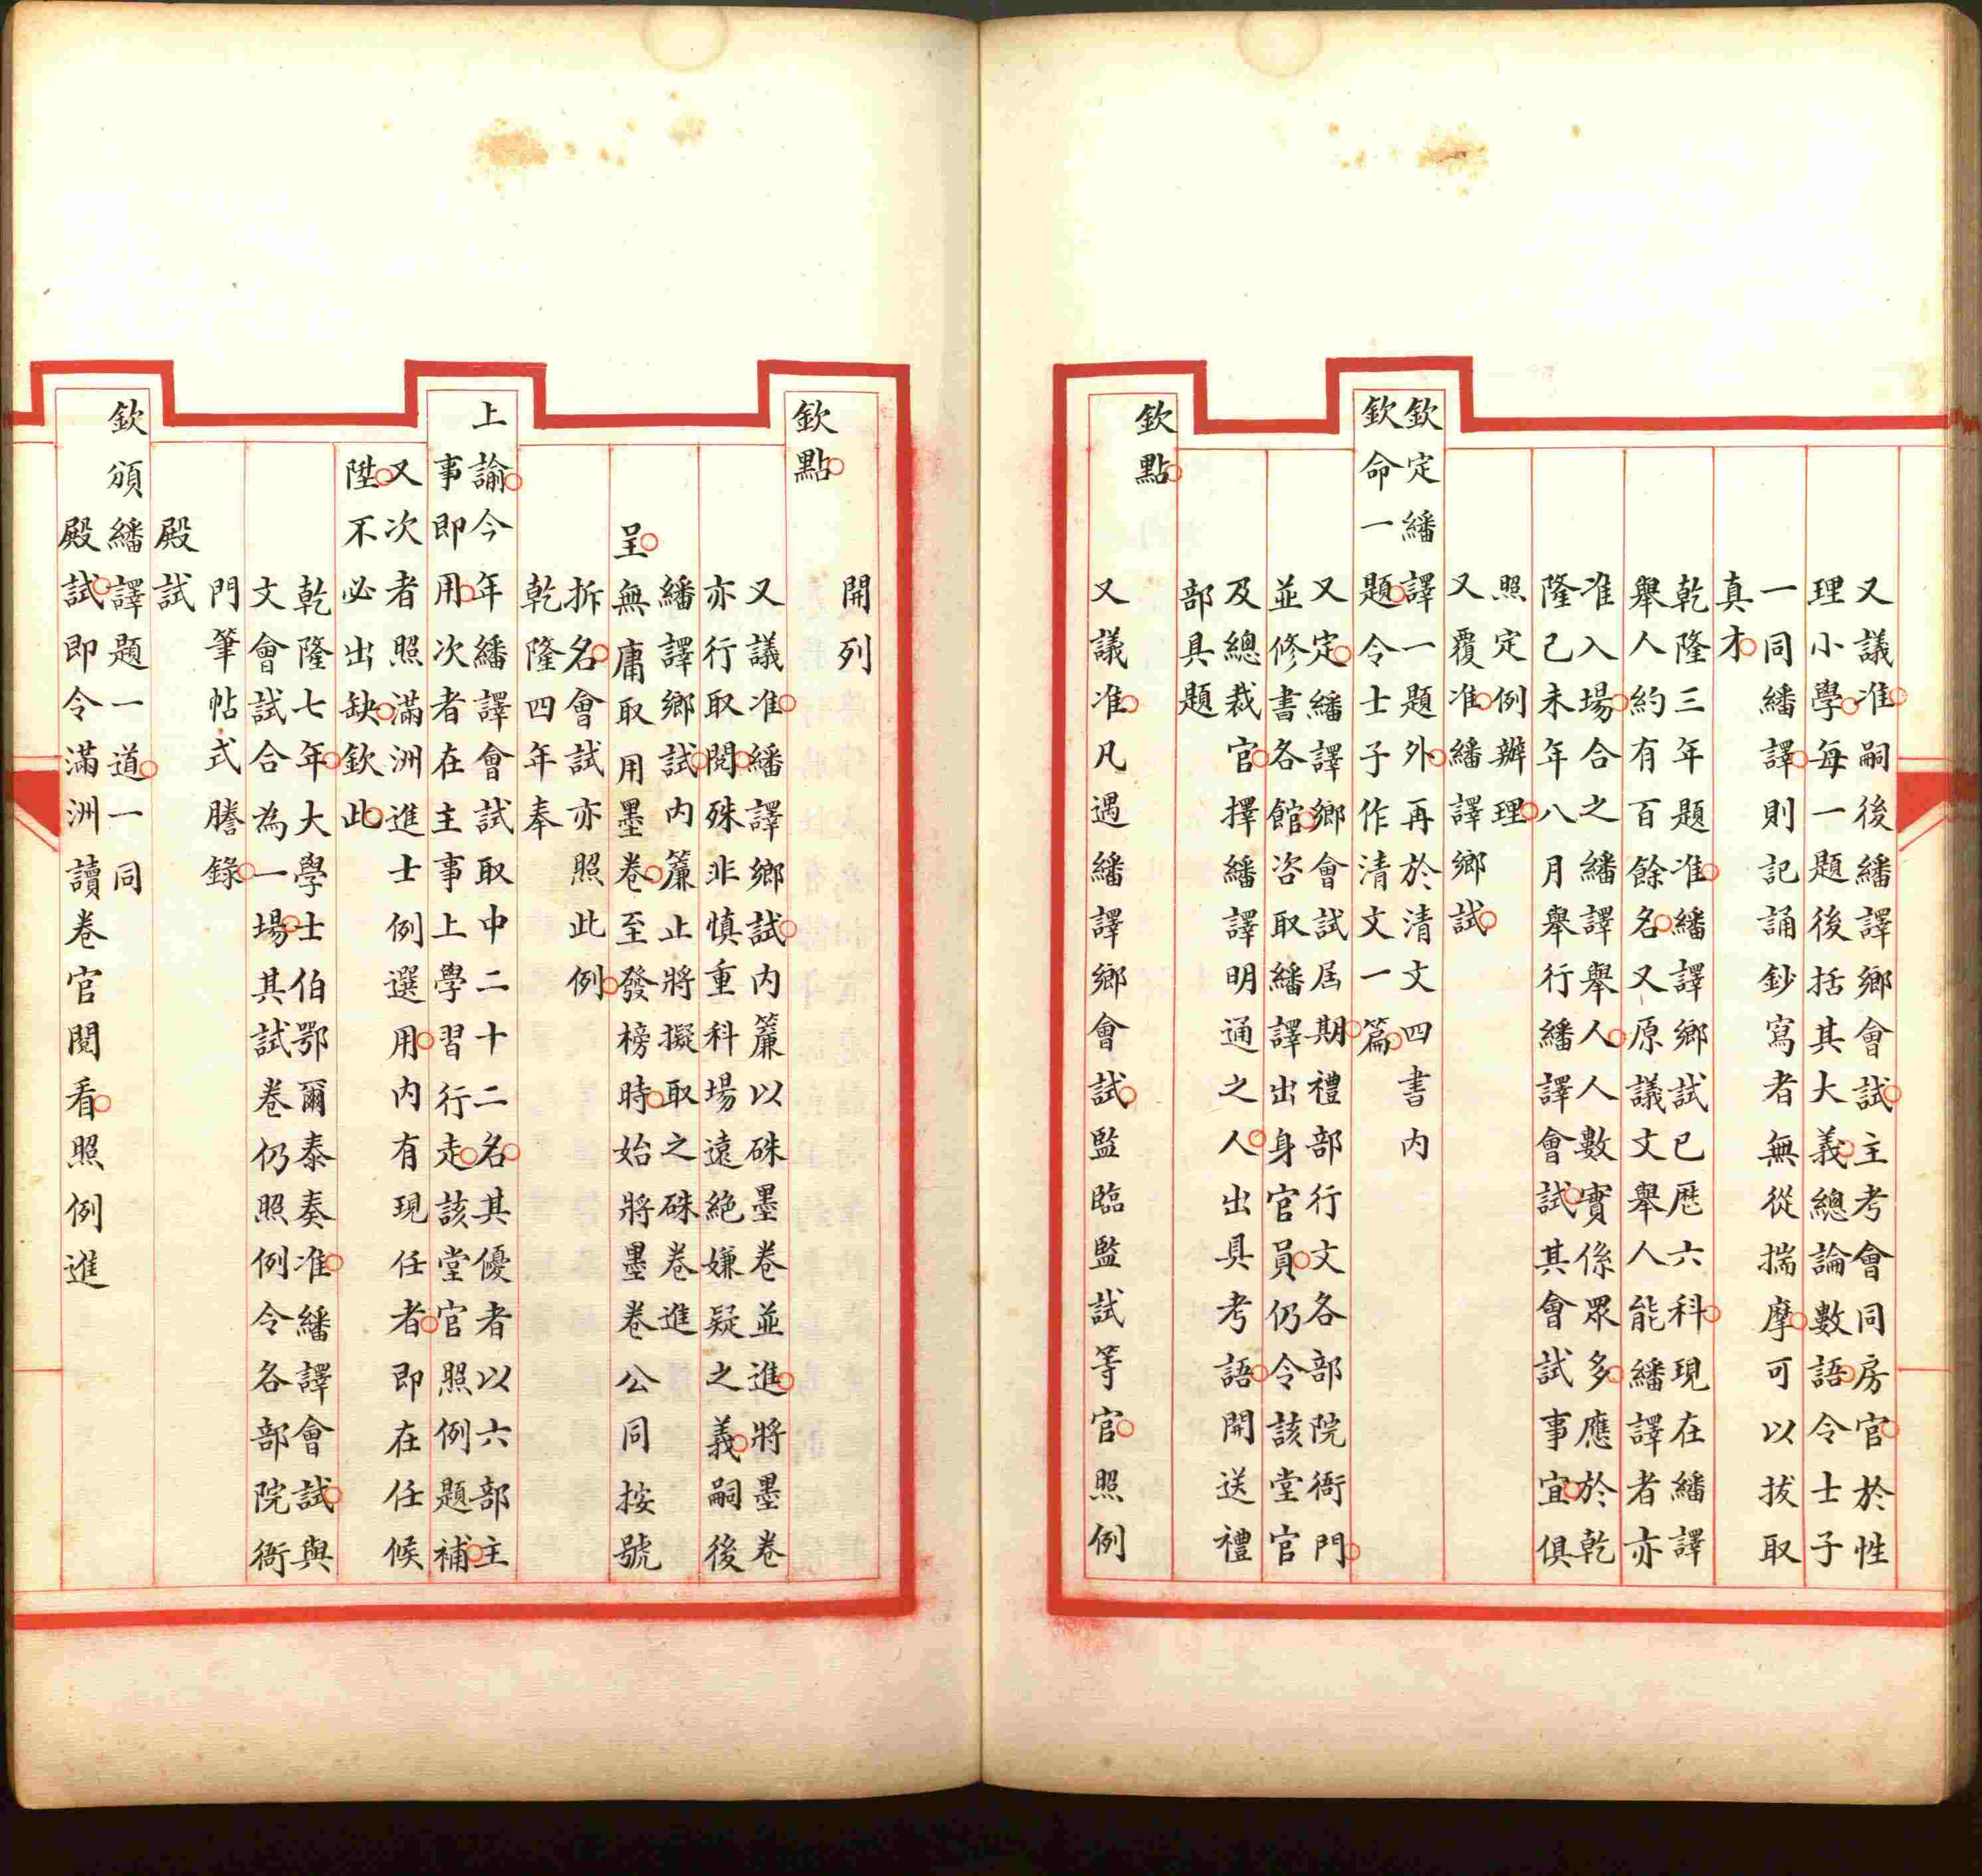 又議准嗣後繙譯鄉會試主考會同房官於性
理小學每一題後括其大義總論數語令士子
一同繙譯則記誦鈔寫者無從揣摩可以拔取
真才
乾隆三年題准繙譯鄉試已歷六科現在繙譯
舉人約有百餘名又原議文舉人能繙譯者亦
准入場合之繙譯舉人人數實係眾多應於乾
隆己未年八月舉行繙譯會試其會試事宜俱
照定例辦理
又覆准繙譯鄉試
欽定繙譯一題外再於清文四書內
欽命一題令士子作清文一篇
又定繙譯鄉會試屆期禮部行文各部院衙門
並修書各館咨取繙譯出身官員仍令該堂官
及總裁官擇繙譯明通之人出具考語開送禮
部具題
欽點
又議准凡遇繙譯鄉會試監臨監試等官照例
開列
欽點
又議准繙譯鄉試內簾以硃墨卷並進將墨卷
亦行取閱殊非慎重科場遠絕嫌疑之義嗣後
繙譯鄉試內簾止將擬取之硃卷進
呈無庸取用墨卷至發榜時始將墨卷公同按號
拆名會試亦照此例
乾隆四年奉
上諭今年繙譯會試取中二十二名其優者以六部主
事即用次者在主事上學習行走該堂官照例題補
又次者照滿洲進士例選用內有現任者即在任候
陞不必出缺欽此
乾隆七年大學士伯鄂爾泰奏准繙譯會試與
文會試合為一場其試卷仍照例令各部院衙
門筆帖式謄錄
殿試
欽頒繙譯題一道一同
殿試即令滿洲讀卷官閱看照例進